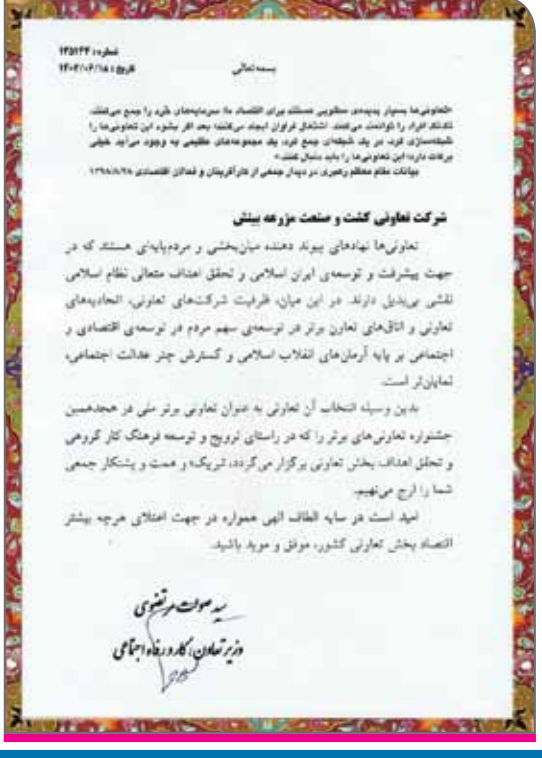 شماره: ۱۲۵۱۲۴
تاریخ: ۱۴۰۲/۰۶/۱۸
بسمه‌تعالی
«تعاونی‌ها بسیار پدیده‌ی مطلوبی هستند برای اقتصاد ما؛ سرمایه‌های خُرد را جمع می‌کنند،
تک‌تک افراد را توانمند می‌کنند، اشتغال فراوان ایجاد می‌کنند؛ بعد اگر بشود این تعاونی‌ها را
شبکه‌سازی کرد، در یک شبکه‌ای جمع کرد، یک مجموعه‌های عظیمی به وجود می‌آید خیلی
برکات دارد؛ این تعاونی‌ها را باید دنبال کنند.»
بیانات مقام معظم رهبری در دیدار جمعی از کارآفرینان و فعالان اقتصادی ۱۳۹۸/۸/۲۸
شرکت تعاونی کشت و صنعت مزرعه بینش
تعاونی‌ها نهادهای پیوند دهنده میان‌بخشی و مردم‌پایه‌ای هستند که در
جهت پیشرفت و توسعه‌ی ایران اسلامی و تحقق اهداف متعالی نظام اسلامی
نقشی بی‌بدیل دارند. در این میان، ظرفیت شرکت‌های تعاونی، اتحادیه‌های
تعاونی و اتاق‌های تعاون برتر در توسعه‌ی سهم مردم در توسعه‌ی اقتصادی و
اجتماعی بر پایه آرمان‌های انقلاب اسلامی و گسترش چتر عدالت اجتماعی،
نمایان‌تر است.
بدین وسیله انتخاب آن تعاونی به عنوان تعاونی برتر ملی در هجدهمین
جشنواره تعاونی‌های برتر را که در راستای ترویج و توسعه فرهنگ کار گروهی
و تحقق اهداف بخش تعاونی برگزار می‌گردد، تبریک و همت و پشتکار جمعی
شما را ارج می‌نهیم.
امید است در سایه الطاف الهی همواره در جهت اعتلای هرچه بیشتر
اقتصاد بخش تعاونی کشور، موفق و موید باشید.
سید صولت مرتضوی
وزیر تعاون، کار و رفاه اجتماعی